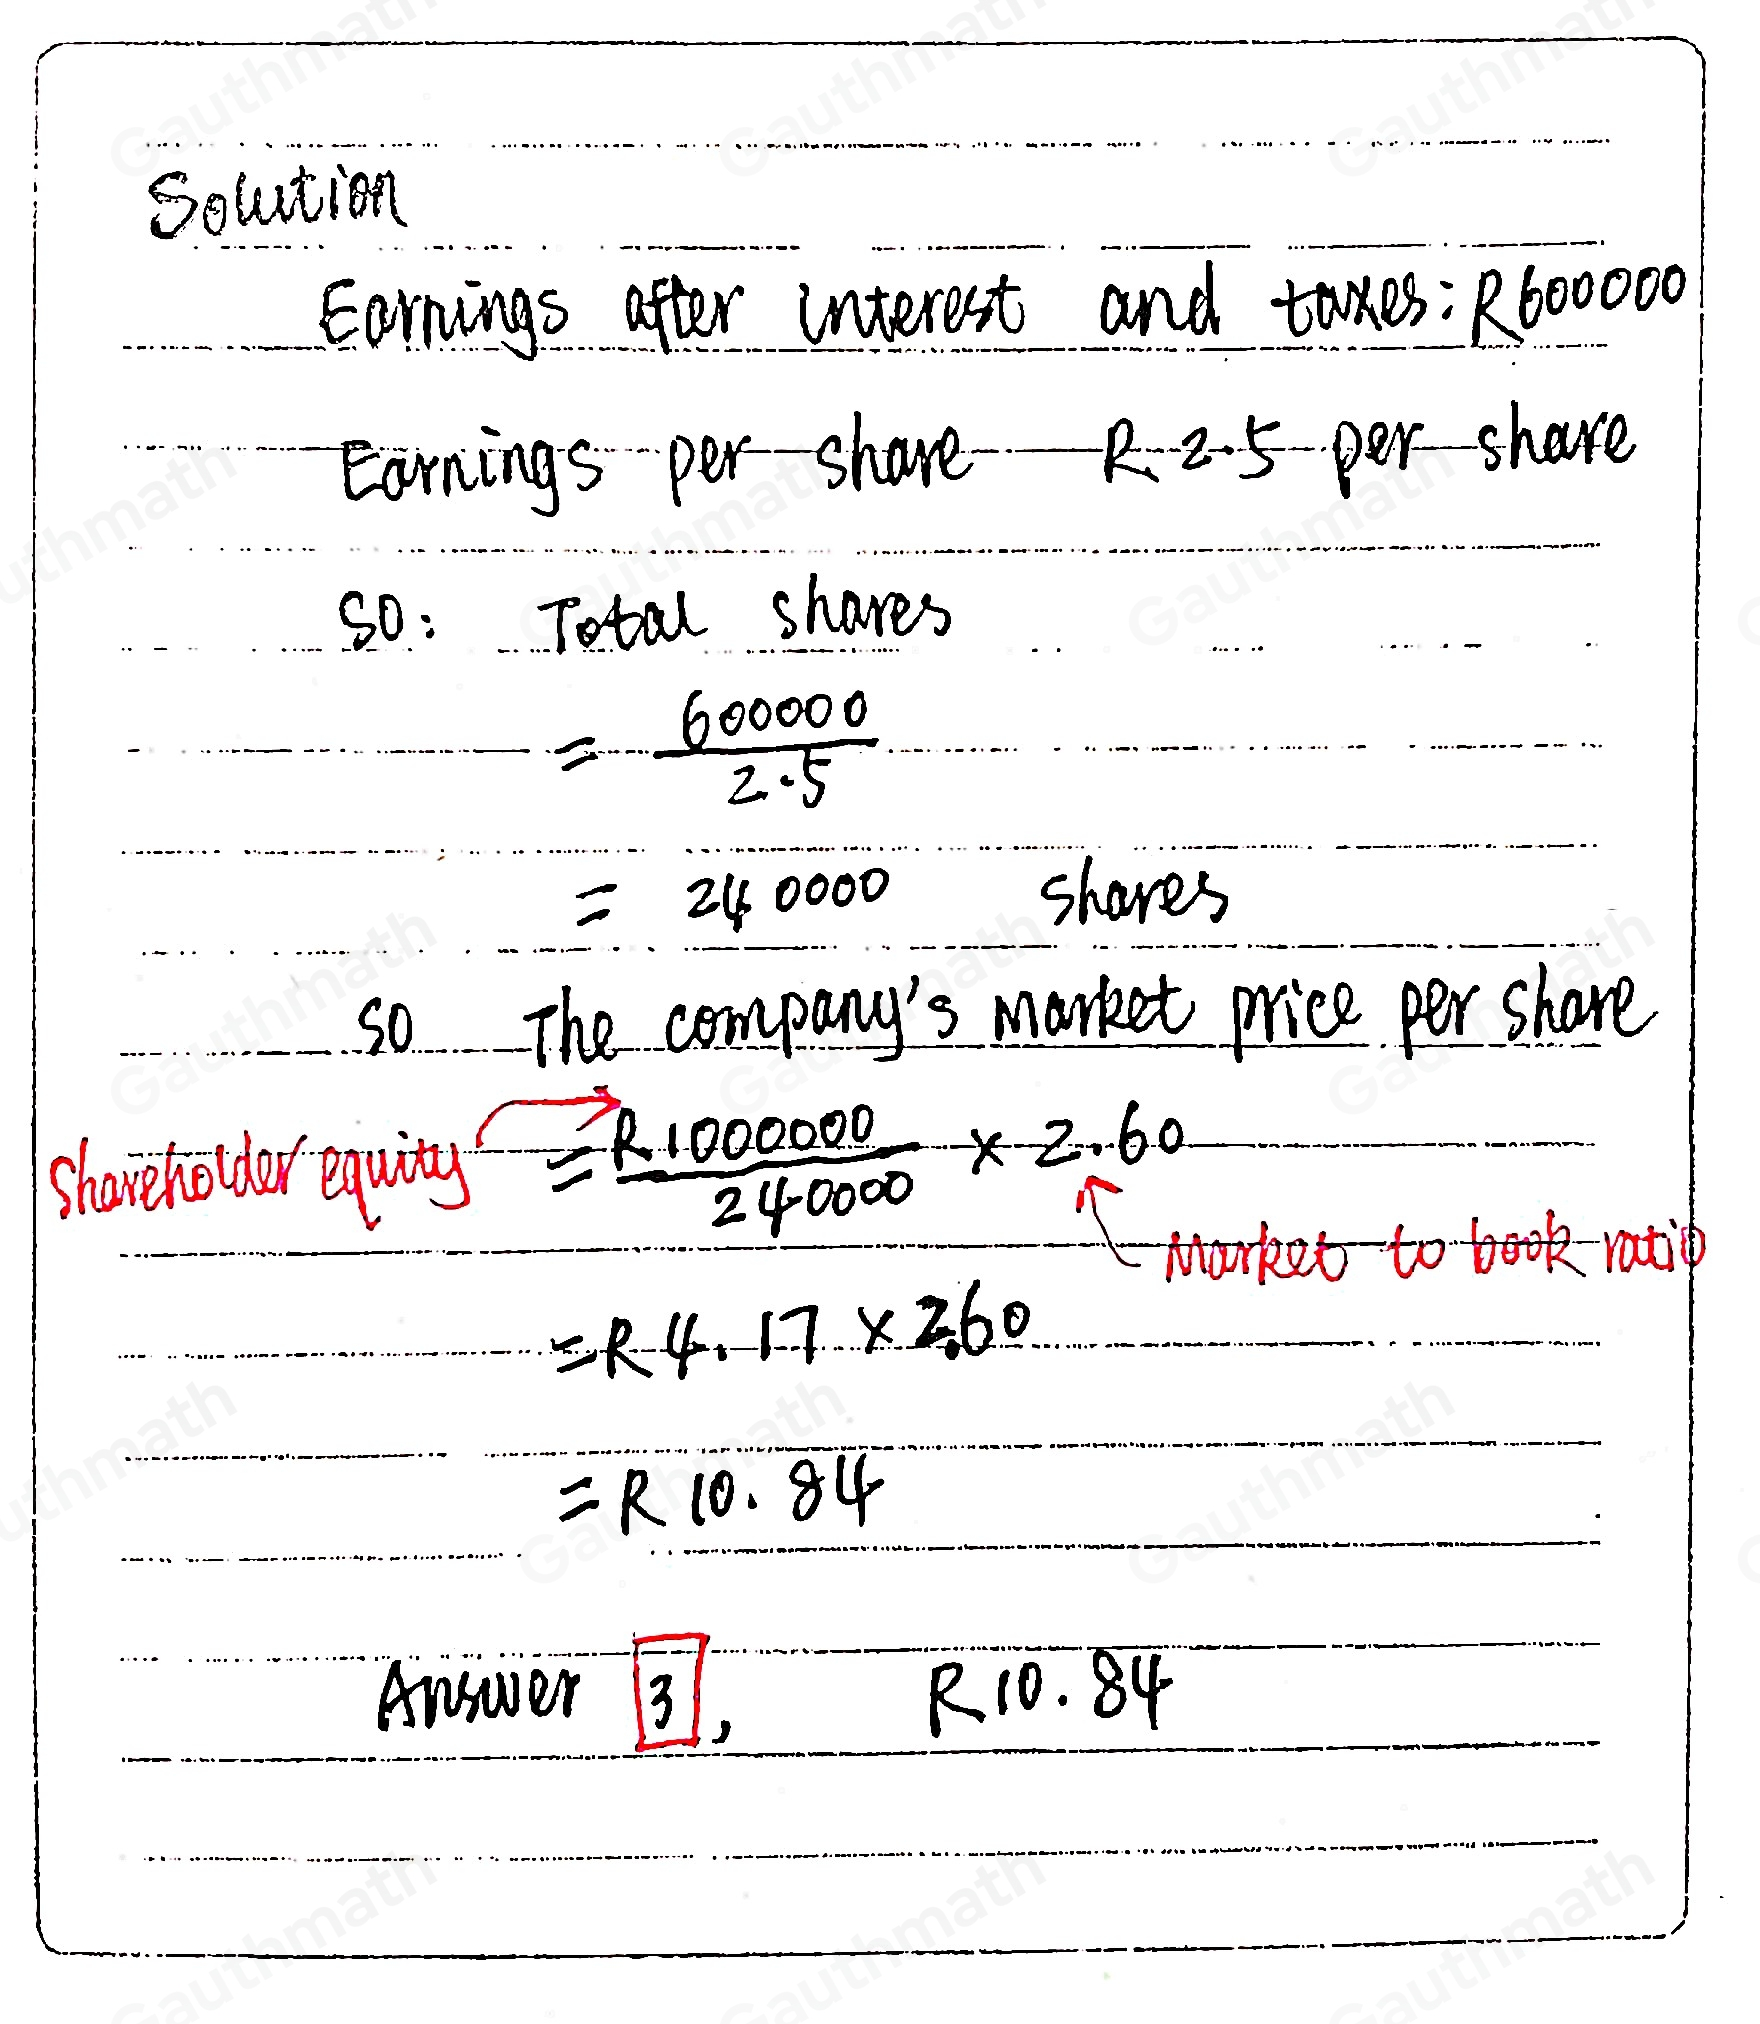 Solution
Earnings after interest and taxes: R600000
Earnings per share R 2.5 per share
SO: Total shares
= 600000
2.5
= 240000 shares
SO The company's Market price per share
shareholder equity = R1000000 × 2.60
240000
Market to book ratio
= R 4.17 × 2.60
= R 10.84
Answer 3, R10.84
Gauthmath